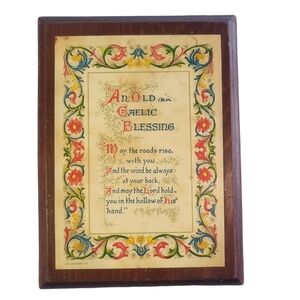 An Old
Gaelic
Blessing
"May the roads rise,
with you,
And the wind be always
at your back.
And may the Lord hold
you in the hollow of his
hand."